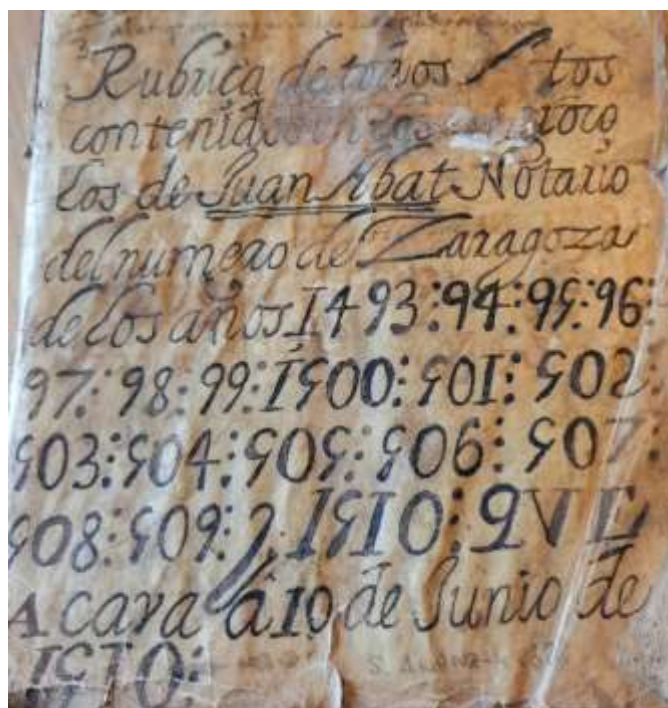 Rubrica de todos tos
contenidos en los
los de Juan Abat Notario
del numero de Zaragoza
de los años 1493:94:95:96:
97:98:99:1500:501:502
503:504:505:506:507:
508:509:y 1510:QVE
Acava á 10 de Junio de
1510: